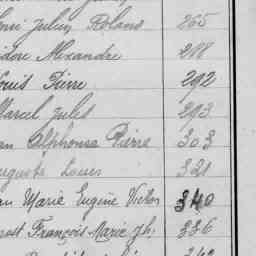 Henri Julien Roland 265
Isidore Alexandre 288
Louis Pierre 292
Marcel Jules 293
Jean Alphonse Pierre 303
Auguste Louis 321
Jean Marie Eugène Victor 340
François Marie Jh. 336